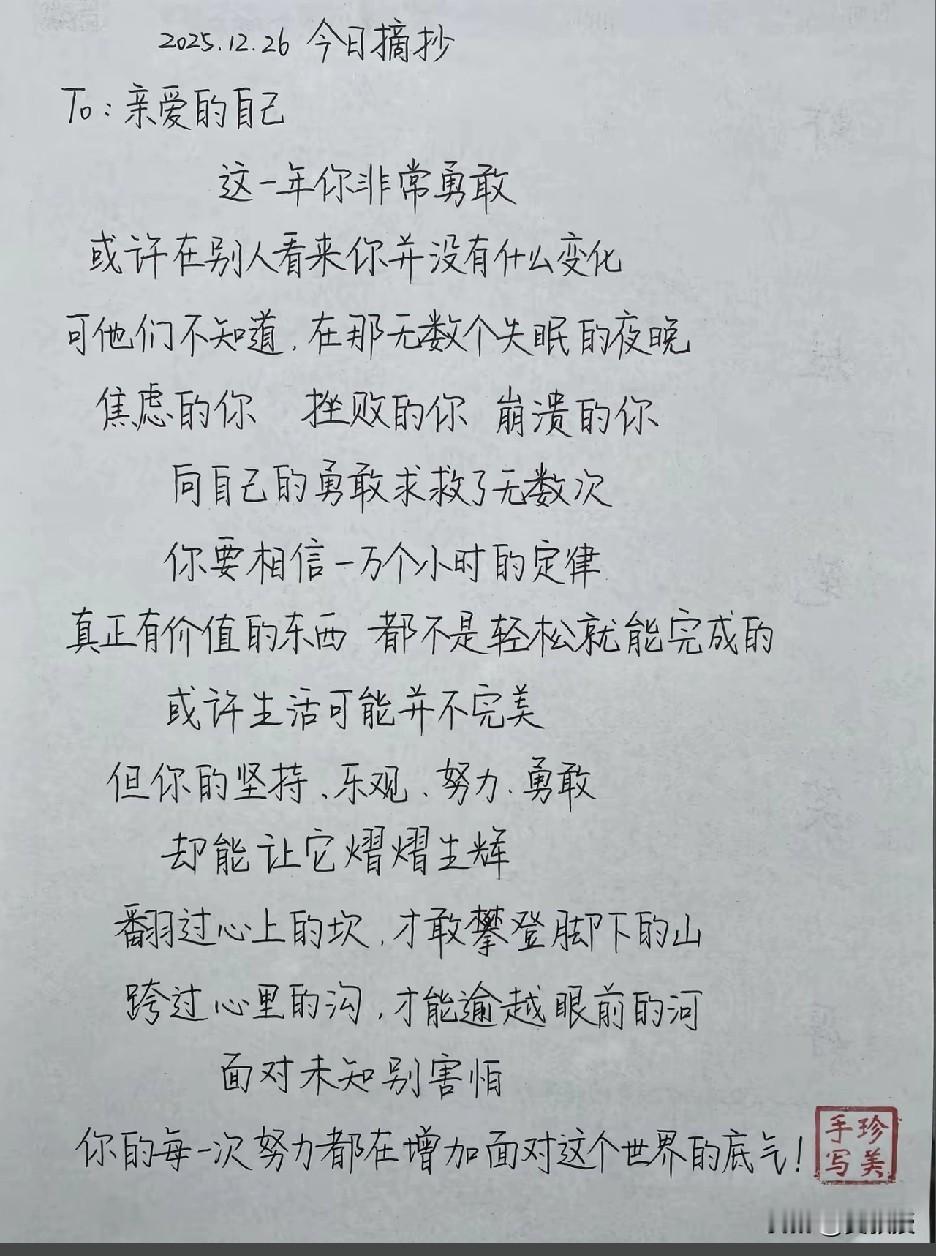 2025.12.26 今日摘抄
To:亲爱的自己
这一年你非常勇敢
或许在别人看来你并没有什么变化
可他们不知道,在那无数个失眠的夜晚
焦虑的你 挫败的你 崩溃的你
向自己的勇敢求救了无数次
你要相信一万个小时的定律
真正有价值的东西 都不是轻松就能完成的
或许生活可能并不完美
但你的坚持、乐观、努力、勇敢
却能让它熠熠生辉
翻过心上的坎,才敢攀登脚下的山
跨过心里的沟,才能逾越眼前的河
面对未知别害怕
你的每一次努力都在增加面对这个世界的底气!
手写珍美